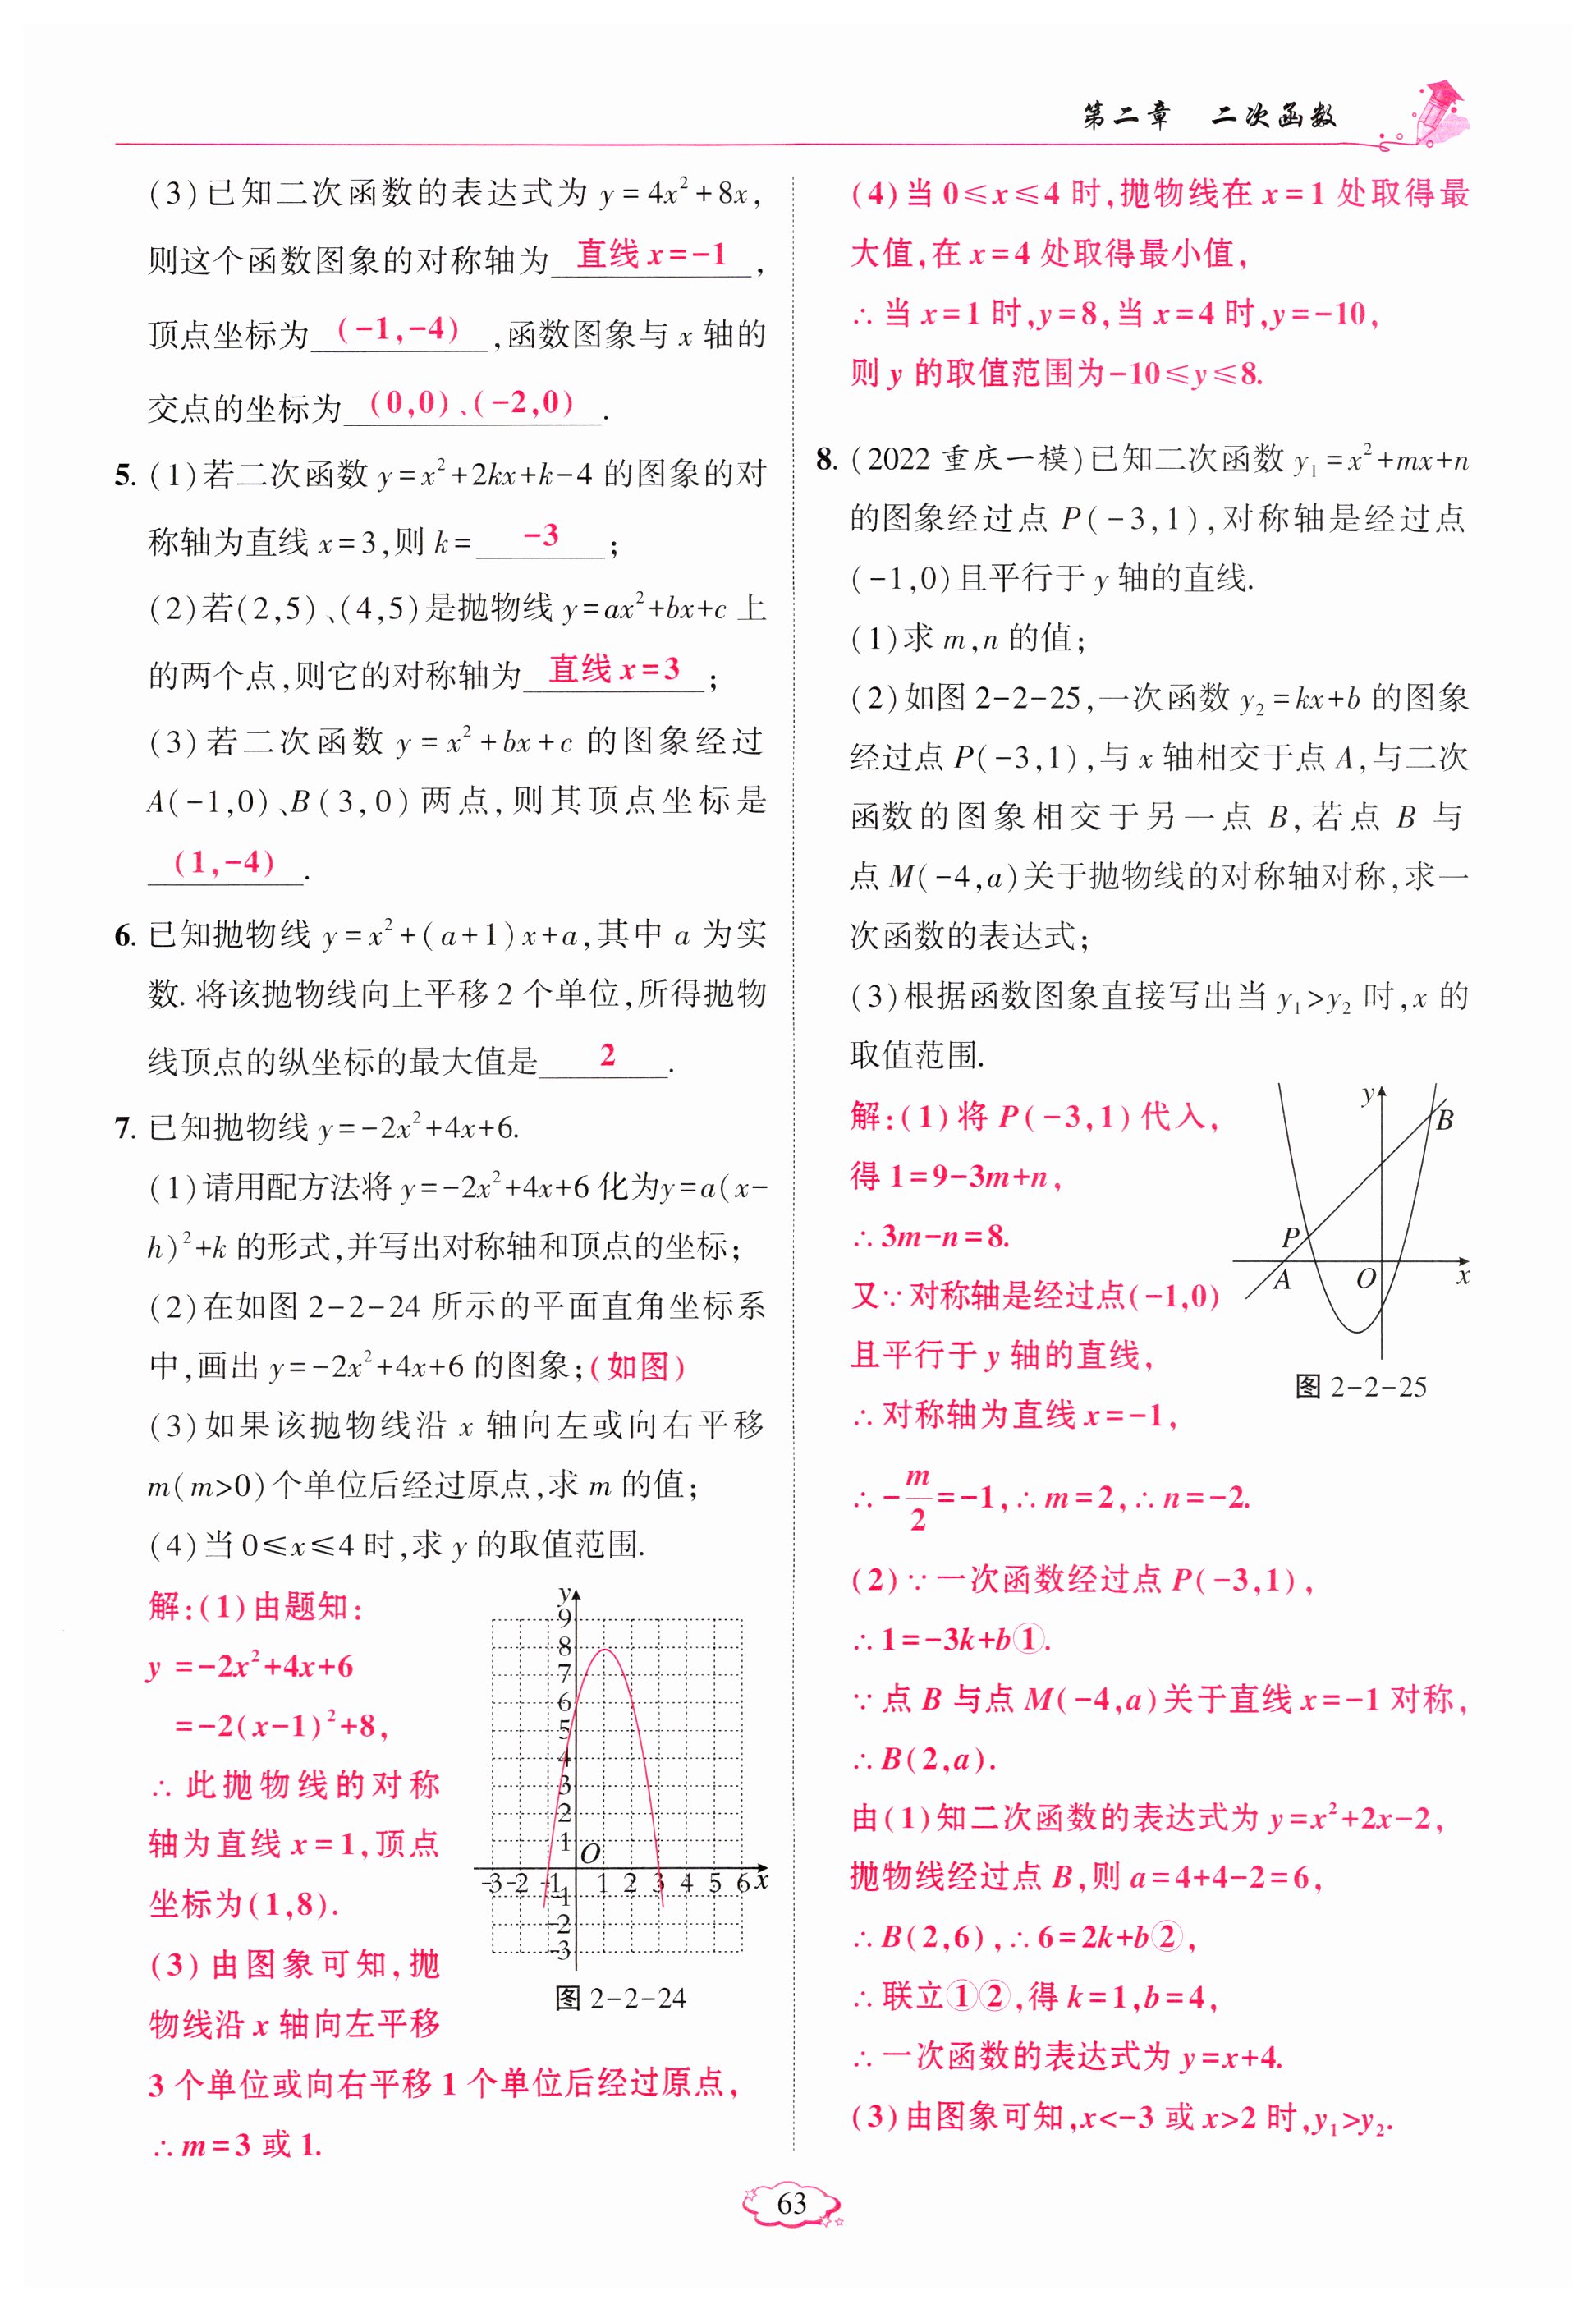 第二章 二次函数
(3)已知二次函数的表达式为 y=4x²+8x,
则这个函数图象的对称轴为 直线 x=-1 ,
顶点坐标为 (-1,-4) ,函数图象与 x 轴的
交点的坐标为 (0,0)、(-2,0) .
5. (1)若二次函数 y=x²+2kx+k-4 的图象的对
称轴为直线 x=3,则 k= -3 ;
(2)若(2,5)、(4,5)是抛物线 y=ax²+bx+c 上
的两个点,则它的对称轴为 直线 x=3 ;
(3)若二次函数 y=x²+bx+c 的图象经过
A(-1,0)、B(3,0)两点,则其顶点坐标是
(1,-4) .
6. 已知抛物线 y=x²+(a+1)x+a,其中 a 为实
数. 将该抛物线向上平移 2 个单位,所得抛物
线顶点的纵坐标的最大值是 2 .
7. 已知抛物线 y=-2x²+4x+6.
(1)请用配方法将 y=-2x²+4x+6 化为y=a(x-
h)²+k 的形式,并写出对称轴和顶点的坐标;
(2)在如图 2-2-24 所示的平面直角坐标系
中,画出 y=-2x²+4x+6 的图象;(如图)
(3)如果该抛物线沿 x 轴向左或向右平移
m(m>0)个单位后经过原点,求 m 的值;
(4)当 0≤x≤4 时,求 y 的取值范围.
解:(1)由题知:
y =-2x²+4x+6
=-2(x-1)²+8,
∴ 此抛物线的对称
轴为直线 x=1,顶点
坐标为(1,8).
(3)由图象可知,抛
物线沿 x 轴向左平移
3 个单位或向右平移 1 个单位后经过原点,
∴ m=3 或 1.
y
9
8
7
6
5
4
3
2
1
O
-3 -2 -1 1 2 3 4 5 6 x
-1
-2
-3
图 2-2-24
(4)当 0≤x≤4 时,抛物线在 x=1 处取得最
大值,在 x=4 处取得最小值,
∴ 当 x=1 时,y=8,当 x=4 时,y=-10,
则 y 的取值范围为-10≤y≤8.
8. (2022 重庆一模)已知二次函数 y₁=x²+mx+n
的图象经过点 P(-3,1),对称轴是经过点
(-1,0)且平行于 y 轴的直线.
(1)求 m,n 的值;
(2)如图 2-2-25,一次函数 y₂=kx+b 的图象
经过点 P(-3,1),与 x 轴相交于点 A,与二次
函数的图象相交于另一点 B,若点 B 与
点 M(-4,a)关于抛物线的对称轴对称,求一
次函数的表达式;
(3)根据函数图象直接写出当 y₁>y₂ 时,x 的
取值范围.
解:(1)将 P(-3,1)代入,
得 1=9-3m+n,
∴ 3m-n=8.
又∵ 对称轴是经过点(-1,0)
且平行于 y 轴的直线,
∴ 对称轴为直线 x=-1,
∴ -m/2=-1,∴ m=2,∴ n=-2.
y
B
P
A O x
图 2-2-25
(2)∵ 一次函数经过点 P(-3,1),
∴ 1=-3k+b①.
∵ 点 B 与点 M(-4,a)关于直线 x=-1 对称,
∴ B(2,a).
由(1)知二次函数的表达式为 y=x²+2x-2,
抛物线经过点 B,则 a=4+4-2=6,
∴ B(2,6),∴ 6=2k+b②,
∴ 联立①②,得 k=1,b=4,
∴ 一次函数的表达式为 y=x+4.
(3)由图象可知,x<-3 或 x>2 时,y₁>y₂.
63